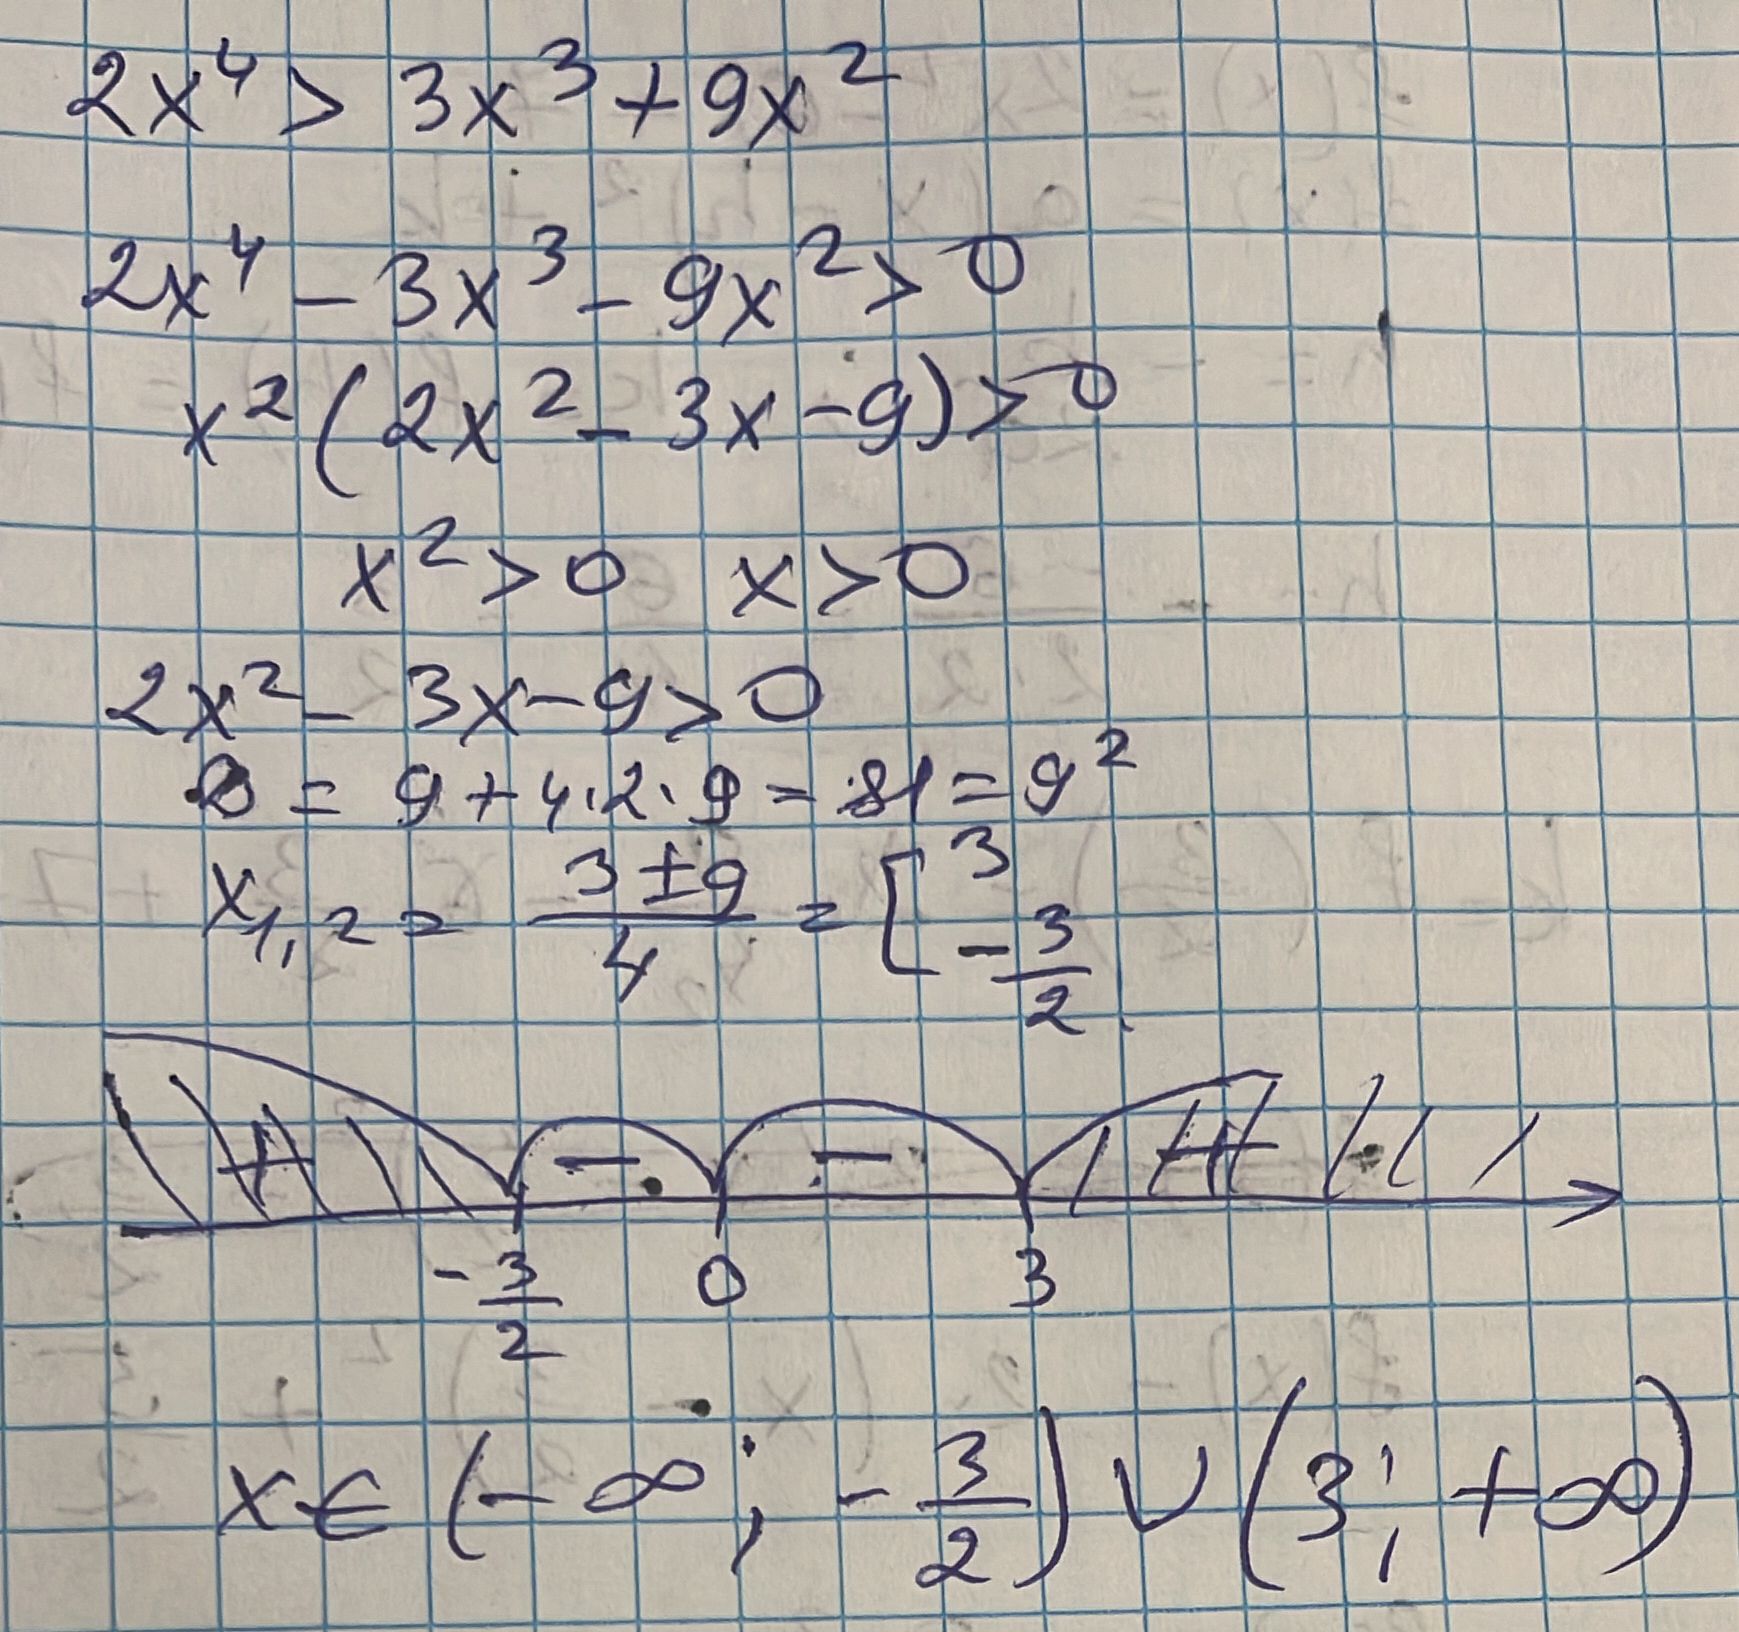 2x⁴ > 3x³ + 9x²
2x⁴ - 3x³ - 9x² > 0
x² (2x² - 3x - 9) > 0
x² > 0 x > 0
2x² - 3x - 9 > 0
D = 9 + 4·2·9 = 81 = 9²
x₁,₂ = (3 ± 9)/4 = [ 3 -3/2
+ - - +
-3/2 0 3
x ∈ (-∞; -3/2) ∪ (3; +∞)